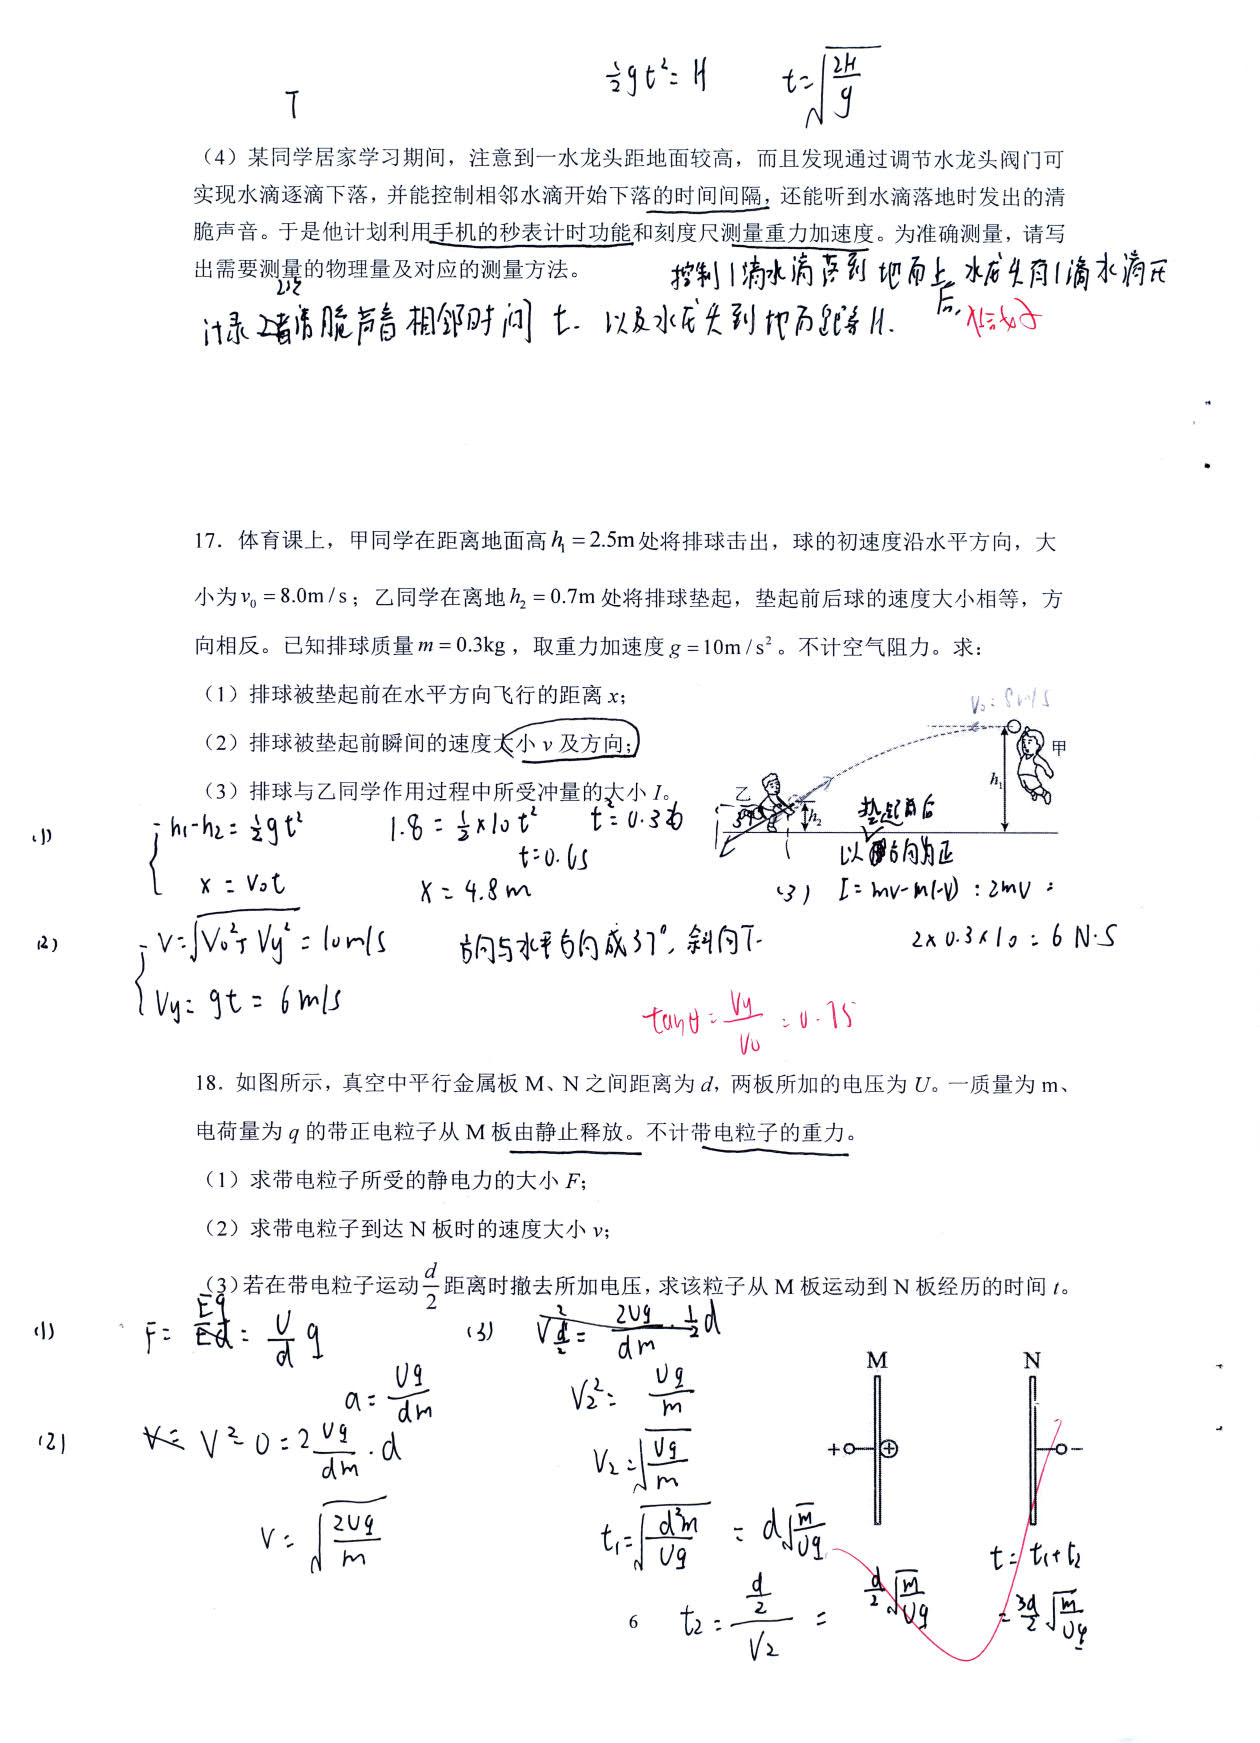 ½gt²=H  t=√(2H/g)
T
（4）某同学居家学习期间，注意到一水龙头距地面较高，而且发现通过调节水龙头阀门可
实现水滴逐滴下落，并能控制相邻水滴开始下落的时间间隔，还能听到水滴落地时发出的清
脆声音。于是他计划利用手机的秒表计时功能和刻度尺测量重力加速度。为准确测量，请写
出需要测量的物理量及对应的测量方法。
控制1滴水滴落到地面上后，水龙头有1滴水滴
记录2清脆声音相邻时间 t. 以及水龙头到地面距离H.
17．体育课上，甲同学在距离地面高h₁=2.5m处将排球击出，球的初速度沿水平方向，大
小为v₀=8.0m/s；乙同学在离地h₂=0.7m处将排球垫起，垫起前后球的速度大小相等，方
向相反。已知排球质量m=0.3kg，取重力加速度g=10m/s²。不计空气阻力。求：
（1）排球被垫起前在水平方向飞行的距离 x；
（2）排球被垫起前瞬间的速度大小 v 及方向；
（3）排球与乙同学作用过程中所受冲量的大小 I。
V₀=8m/s
甲
h₁
乙
h₂
垫起前后
以 方向为正
(1) h₁-h₂=½gt²  1.8=½×10t²  t²=0.36
t=0.6s
x=V₀t  x=4.8m
(3) I=mv-m(-v)=2mv=
2×0.3×10=6N·S
(2) V=√(V₀²+Vy²)=10m/s  方向与水平方向成37°，斜向下.
Vy=gt=6m/s
tanθ=Vy/V₀=0.75
18．如图所示，真空中平行金属板 M、N 之间距离为 d，两板所加的电压为 U。一质量为 m、
电荷量为 q 的带正电粒子从 M 板由静止释放。不计带电粒子的重力。
（1）求带电粒子所受的静电力的大小 F；
（2）求带电粒子到达 N 板时的速度大小 v；
（3）若在带电粒子运动d/2距离时撤去所加电压，求该粒子从 M 板运动到 N 板经历的时间 t。
(1) F=Eq=U/d q
a=Uq/dm
(2) V²-0=2Uq/dm·d
V=√(2Uq/m)
(3) V²d/2=2Uq/dm·½d
V₂²=Uq/m
V₂=√(Uq/m)
t₁=√(d²m/Uq)=d√(m/Uq)
t₂=(d/2)/V₂=d/2√(m/Uq)
M N
+ + −
t=t₁+t₂
=3d/2√(m/Uq)
6